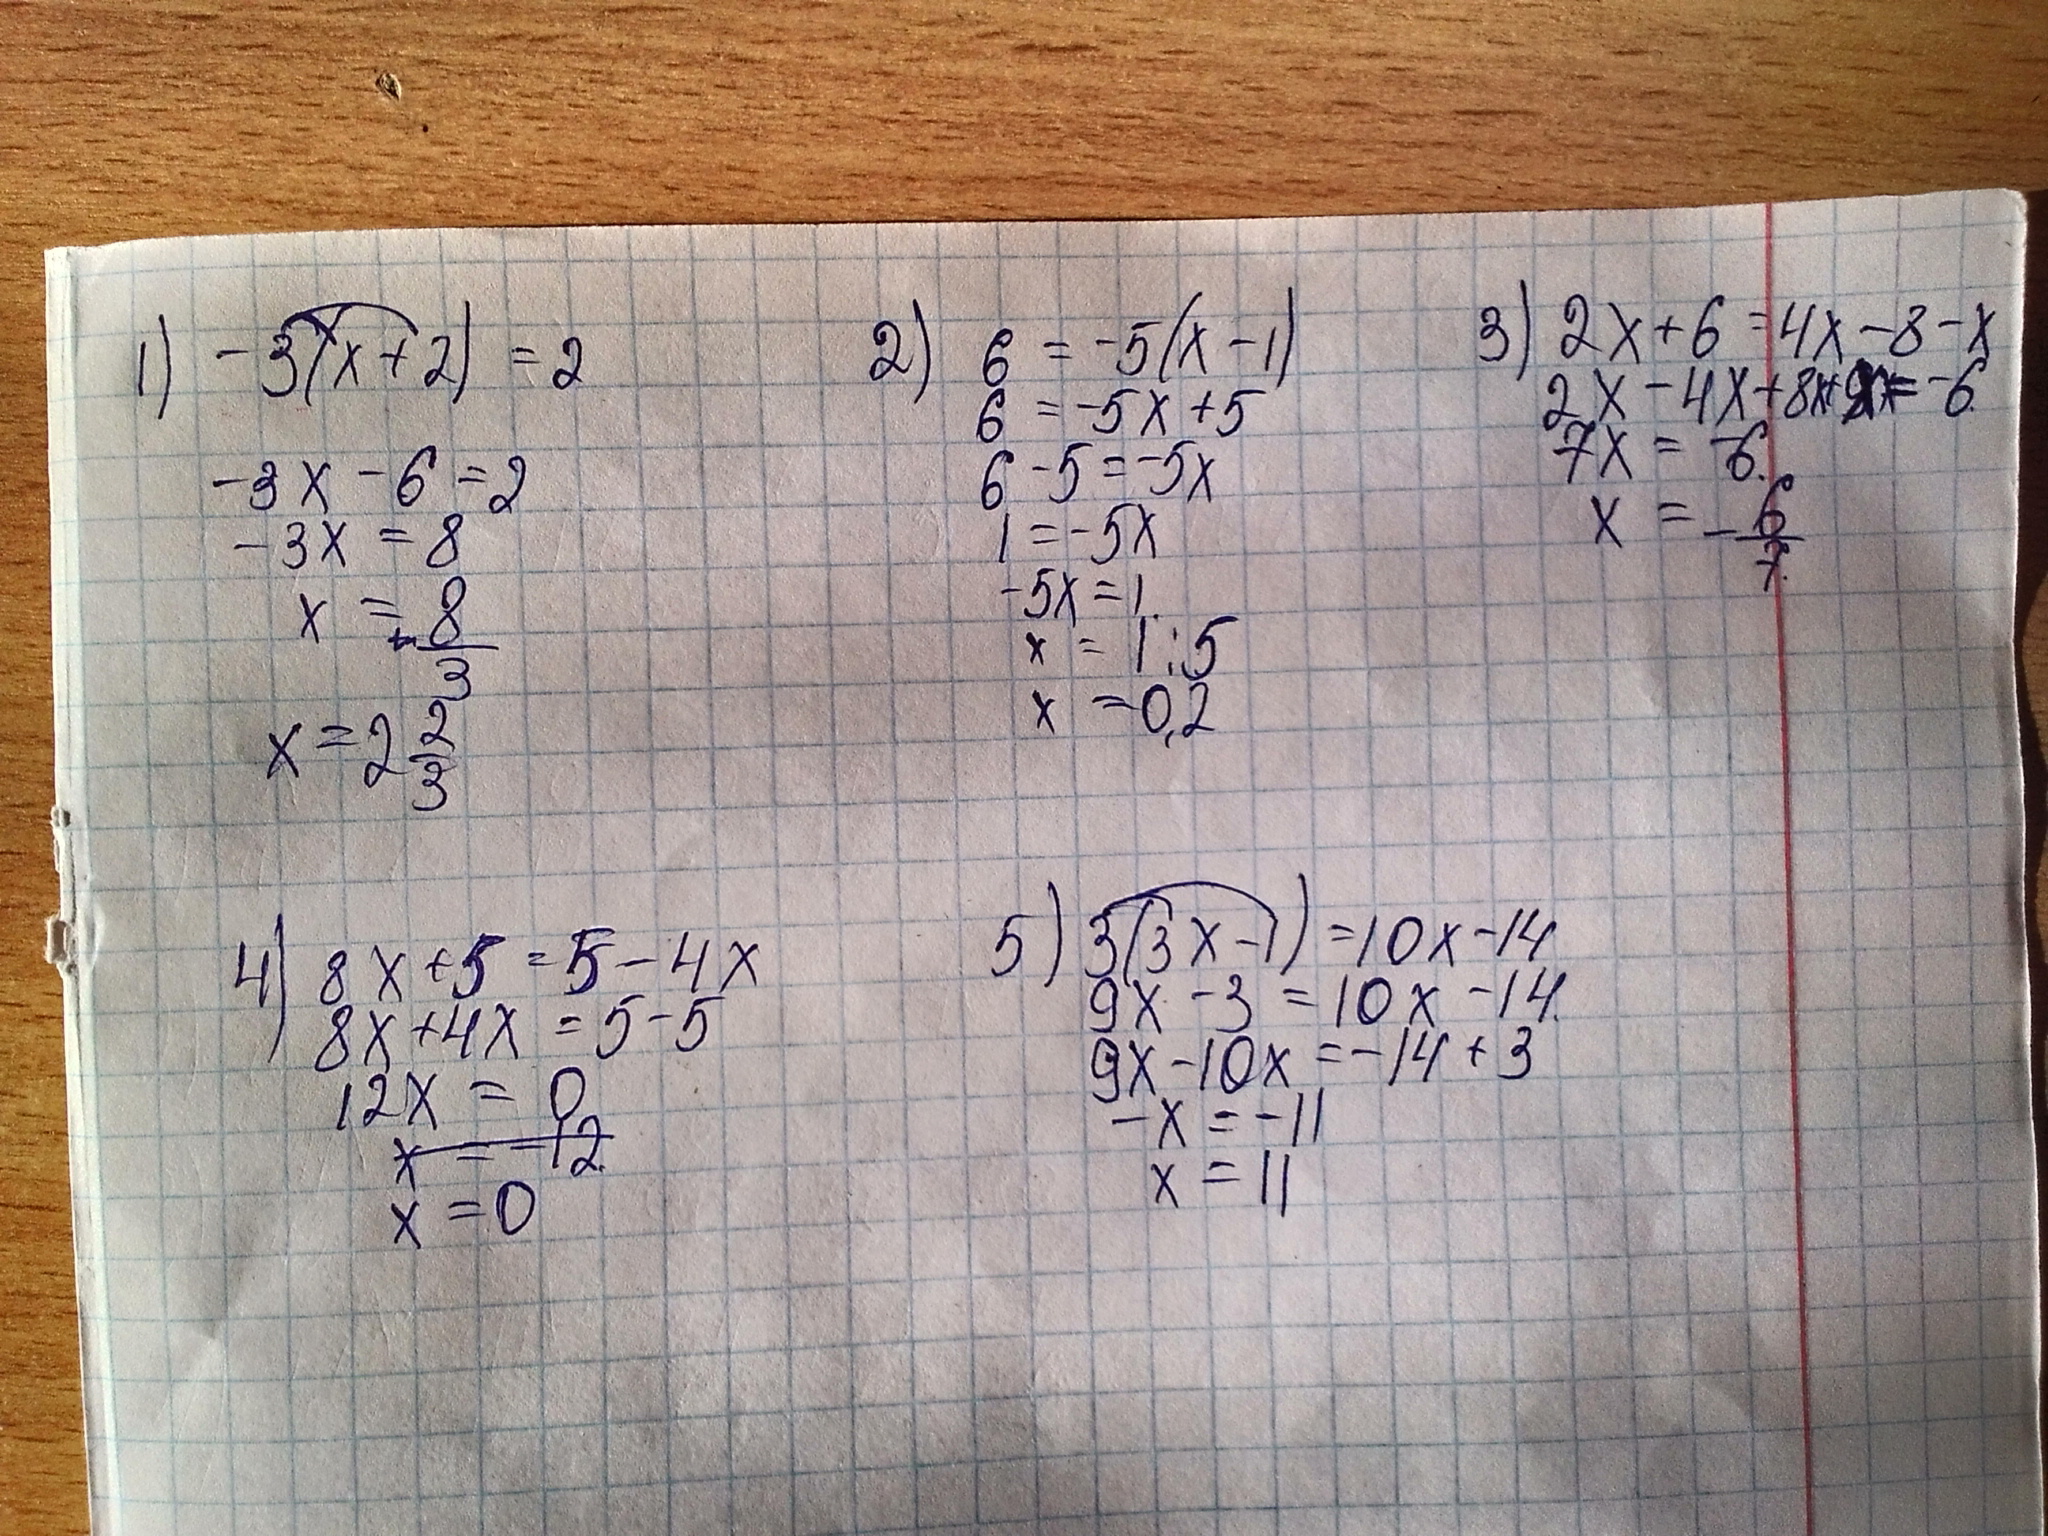 1) -3(x+2) = 2
-3x - 6 = 2
-3x = 8
x = -8/3
x = 2 2/3
2) 6 = -5(x-1)
6 = -5x+5
6-5 = -5x
1 = -5x
-5x = 1.
x = 1:5
x = 0,2
3) 2x+6 = 4x-8-x
2x-4x+8x+x = -6.
7x = -6.
x = -6/7.
4) 8x+5 = 5-4x
8x+4x = 5-5
12x = 0
x = -12.
x = 0
5) 3(3x-1) = 10x-14
9x-3 = 10x-14.
9x-10x = -14+3
-x = -11
x = 11